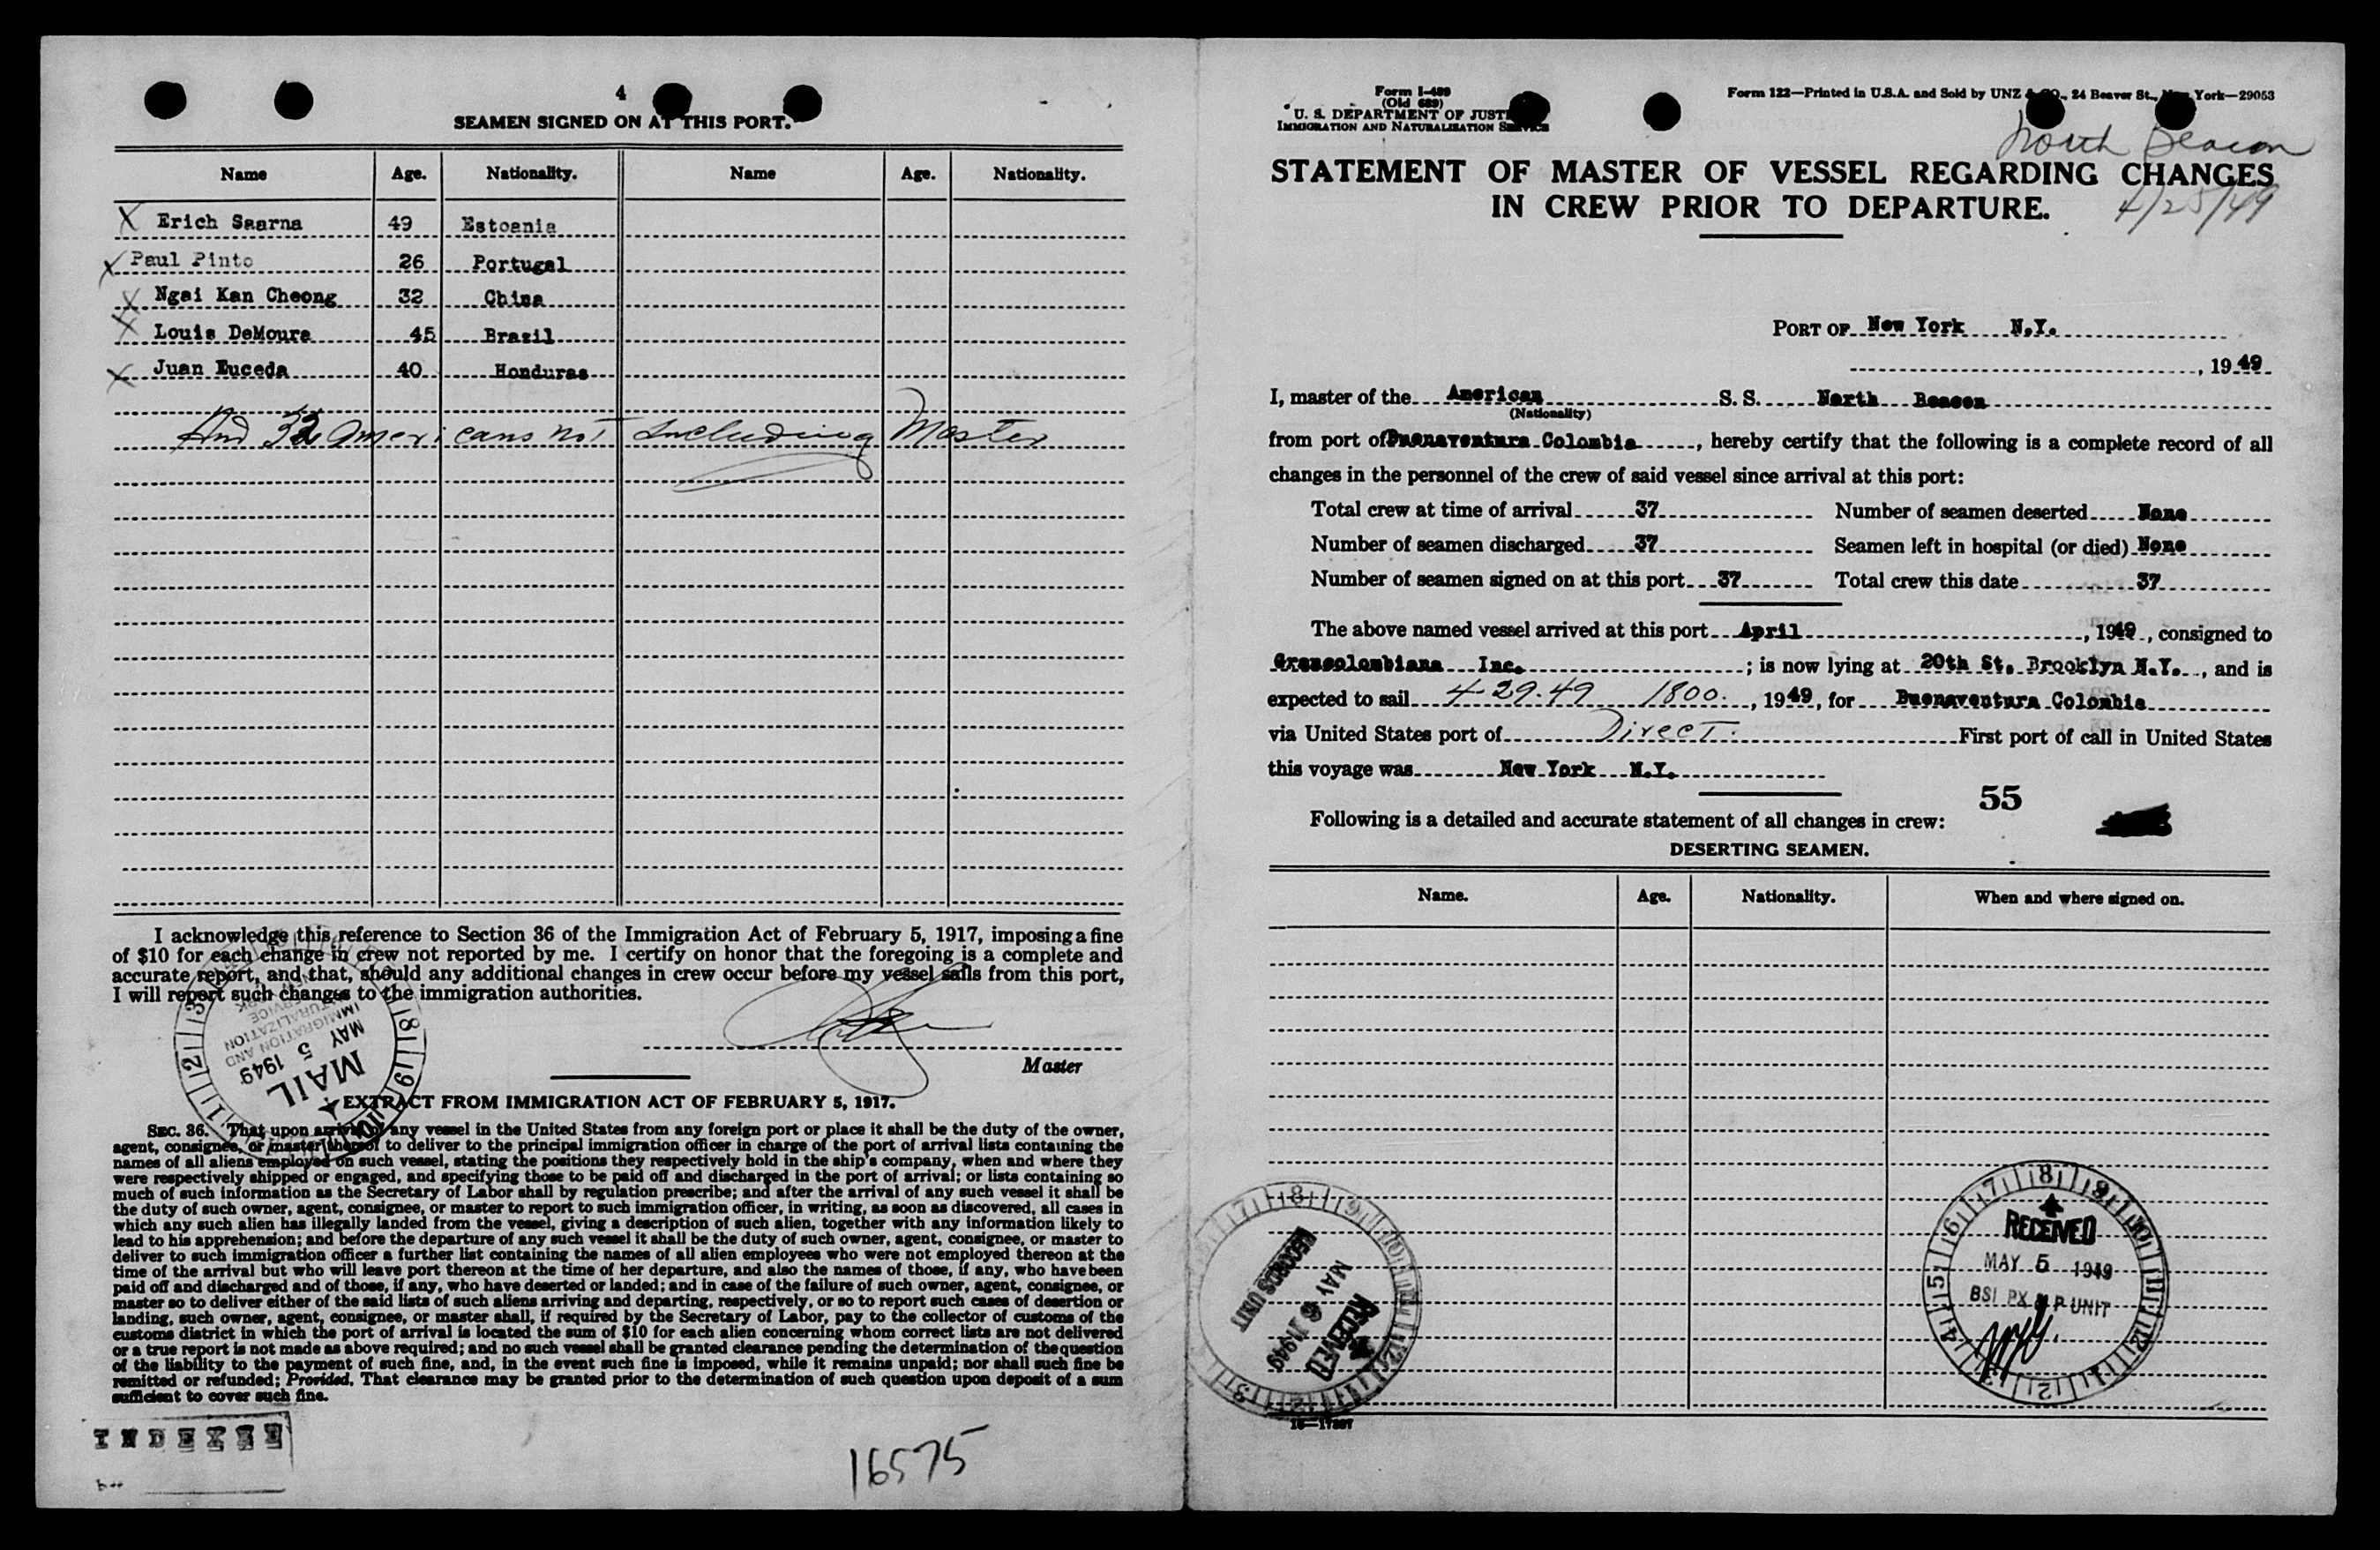 4
SEAMEN SIGNED ON AT THIS PORT.
Name Age. Nationality. Name Age. Nationality.
X Erich Saarna 49 Estoania
X Paul Pinto 26 Portugal
X Ngai Kan Cheong 32 China
X Louis DeMoura 45 Brazil
X Juan Euceda 40 Honduras
And 32 Americans not including Master
I acknowledge this reference to Section 36 of the Immigration Act of February 5, 1917, imposing a fine
of $10 for each change in crew not reported by me. I certify on honor that the foregoing is a complete and
accurate report, and that, should any additional changes in crew occur before my vessel sails from this port,
I will report such changes to the immigration authorities.
Master
IMMIGRATION AND
NATURALIZATION
SERVICE
MAY 5 1949
MAIL
EXTRACT FROM IMMIGRATION ACT OF FEBRUARY 5, 1917.
SEC. 36. That upon arrival of any vessel in the United States from any foreign port or place it shall be the duty of the owner,
agent, consignee, or master thereof to deliver to the principal immigration officer in charge of the port of arrival lists containing the
names of all aliens employed on such vessel, stating the positions they respectively hold in the ship's company, when and where they
were respectively shipped or engaged, and specifying those to be paid off and discharged in the port of arrival; or lists containing so
much of such information as the Secretary of Labor shall by regulation prescribe; and after the arrival of any such vessel it shall be
the duty of such owner, agent, consignee, or master to report to such immigration officer, in writing, as soon as discovered, all cases in
which any such alien has illegally landed from the vessel, giving a description of such alien, together with any information likely to
lead to his apprehension; and before the departure of any such vessel it shall be the duty of such owner, agent, consignee, or master to
deliver to such immigration officer a further list containing the names of all alien employees who were not employed thereon at the
time of the arrival but who will leave port thereon at the time of her departure, and also the names of those, if any, who have been
paid off and discharged and of those, if any, who have deserted or landed; and in case of the failure of such owner, agent, consignee, or
master so to deliver either of the said lists of such aliens arriving and departing, respectively, or so to report such cases of desertion or
landing, such owner, agent, consignee, or master shall, if required by the Secretary of Labor, pay to the collector of customs of the
customs district in which the port of arrival is located the sum of $10 for each alien concerning whom correct lists are not delivered
or a true report is not made as above required; and no such vessel shall be granted clearance pending the determination of the question
of the liability to the payment of such fine, and, in the event such fine is imposed, while it remains unpaid; nor shall such fine be
remitted or refunded; Provided, That clearance may be granted prior to the determination of such question upon deposit of a sum
sufficient to cover such fine.
INDEXED
16575
Form I-489
(Old 689)
U. S. DEPARTMENT OF JUSTICE
IMMIGRATION AND NATURALIZATION SERVICE
Form 122—Printed in U.S.A. and Sold by UNZ & CO., 24 Beaver St., New York—29053
North Beacon
STATEMENT OF MASTER OF VESSEL REGARDING CHANGES
IN CREW PRIOR TO DEPARTURE.
4/25/49
PORT OF New York N.Y.
, 1949
I, master of the American S. S. North Beacon
(Nationality)
from port of Buenaventura Colombia, hereby certify that the following is a complete record of all
changes in the personnel of the crew of said vessel since arrival at this port:
Total crew at time of arrival 37 Number of seamen deserted None
Number of seamen discharged 37 Seamen left in hospital (or died) None
Number of seamen signed on at this port 37 Total crew this date 37
The above named vessel arrived at this port April, 1949, consigned to
Grancolombiana Inc. ; is now lying at 20th St. Brooklyn N.Y., and is
expected to sail 4-29-49 1800., 1949, for Buenaventura Colombia
via United States port of Direct. First port of call in United States
this voyage was New York N.Y.
55
Following is a detailed and accurate statement of all changes in crew:
DESERTING SEAMEN.
Name. Age. Nationality. When and where signed on.
RECORDS UNIT
MAY 6 1949
RECEIVED
RECEIVED
MAY 5 1949
BSI PX M P UNIT
16—17887